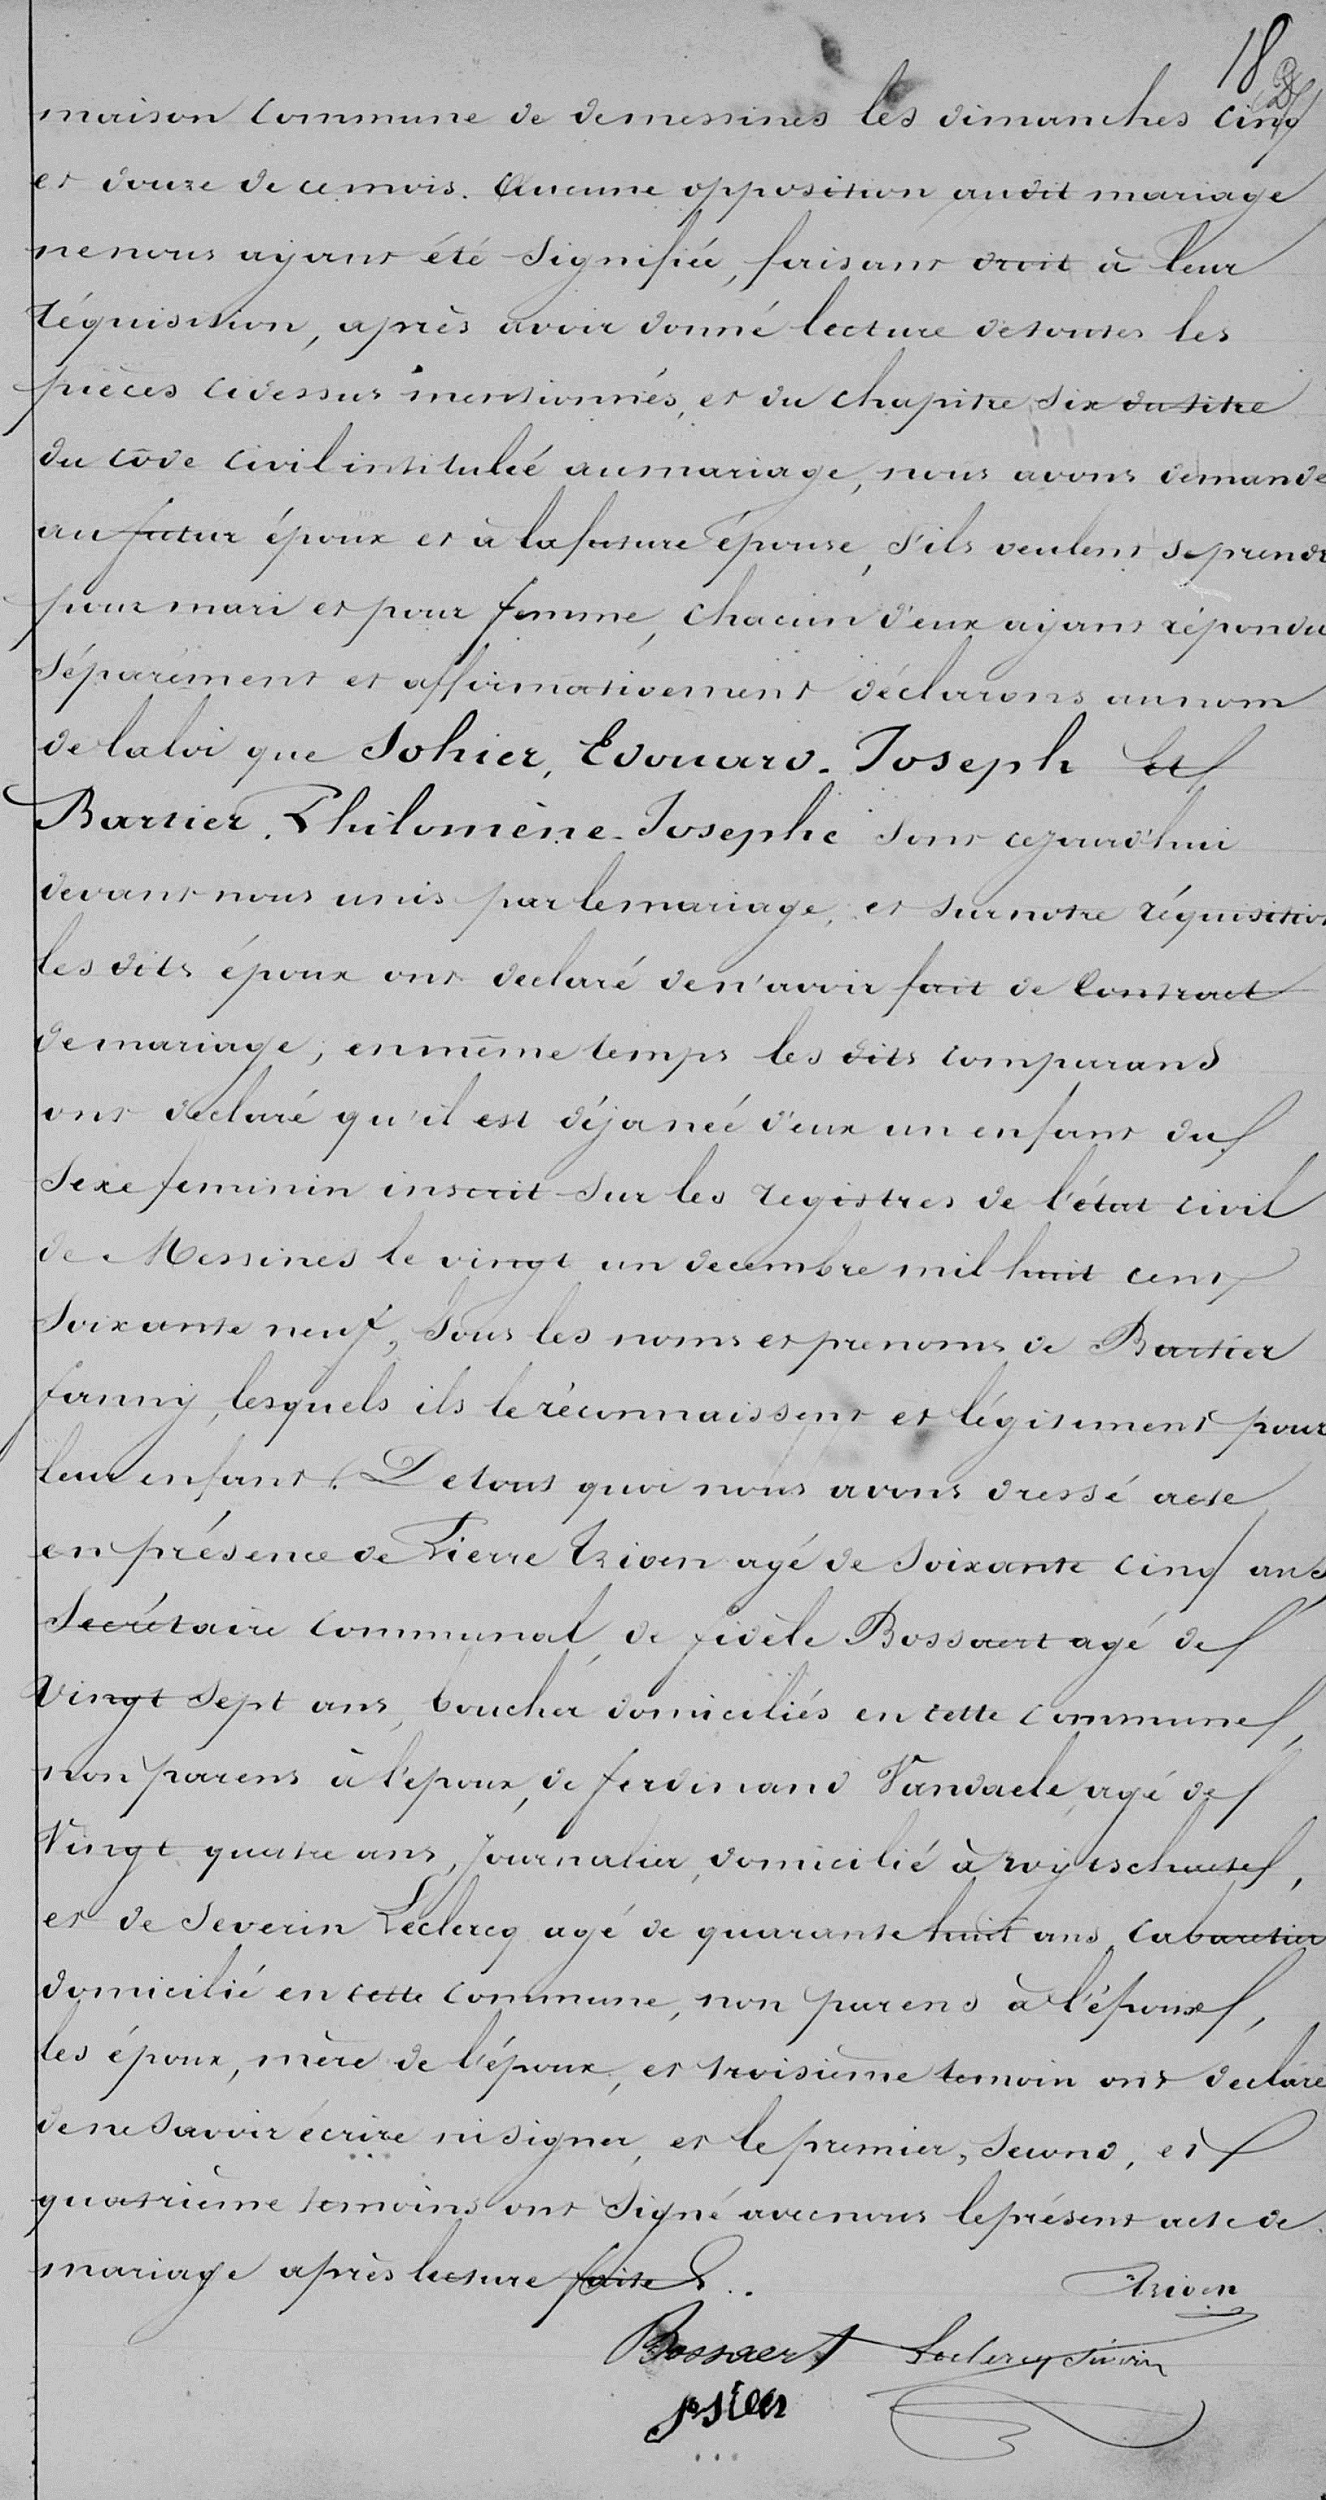 18
maison commune de demessines les dimanches cinq
et douze de ce mois. Aucune opposition audit mariage
ne nous ayant été signifiée, faisant droit à leur
réquisition, après avoir donné lecture de toutes les
pièces cidessus mentionnés, et du chapitre six du titre
du côde civil intituleé au mariage, nous avons demandé
au futur époux et à la future épouse, s'ils veulent se prendr
pour mari et pour femme, chacun d'eux ayant répondu
séparément et affirmativement déclarons au nom
de la loi que Sohier, Edouard-Joseph et
Bartier, Philomène-Josephe sont cejourd'hui
devant nous unis par le mariage, et sur notre réquisition
les dits époux ont declaré de n'avoir fait de contract
de mariage, en même temps les dits comparans
ont declaré qu'il est déja neé d'eux un enfant du
sexe feminin inscrit sur les registres de l'état civil
de Messines le vingt un decembre mil huit cent
soixante neuf, sous les noms et prenoms de Bartier
fanny, lesquels ils le réconnaissent et légitement pour
leur enfant. De tout quoi nous avons dressé acte
en présence de Pierre Trioen agé de soixante cinq ans
Secrétaire communal, de fidèle Bossaert agé de
Vingt sept ans, boucher domiciliés en cette commune,
non parens à l'epoux, de ferdinand Vandaele, agé de
Vingt quatre ans, journalier, domicilié à wytschaete,
et de Severin Leclercq agé de quarante huit ans, cabaretier
domicilié en cette commune, non parens à l'époux,
les époux, mère de l'époux, et troisième temoin ont declaré
de ne savoir écrire ni signer, et le premier, second, et
quatrième temoins ont signé avec nous le présent acte de
mariage après lecture faite.
Trioen
Bossaert Leclercq Sivrin